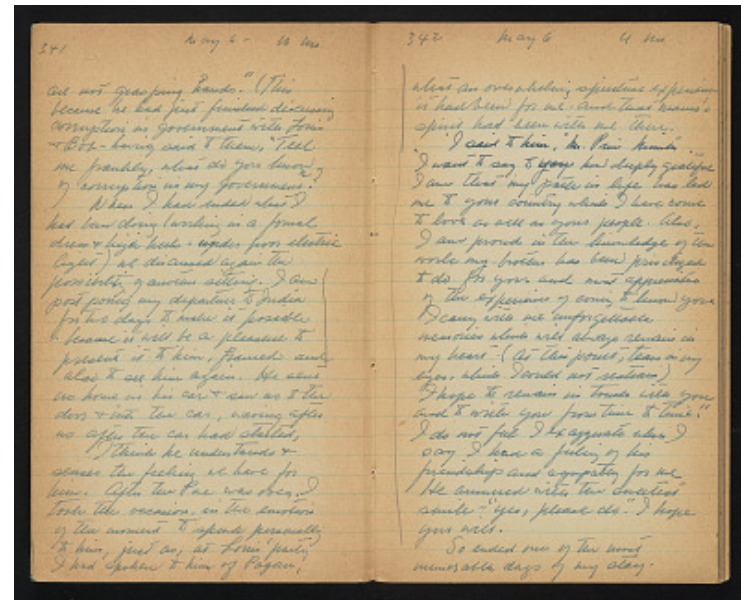 341 May 6 - U Nu
are not grasping hands." (This
because he had just finished discussing
corruption in government with Louis
& Bob - having said to them, "Tell
me frankly, what do you know
of corruption in my government?"
When I had ended what I
had been doing (working in a formal
dress & high heels & under poor electric
light) we discussed again the
possibility of another sitting. I am
post poning my departure to India
for two days to make it possible
because it will be a pleasure to
present it to him, framed and
also to see him again. He sent
us home in his car & saw us to the
door & into the car, waving after
us after the car had started,
I think he understands &
senses the feeling we have for
him. After the was over, I
took the occasion, in the emotion
of the moment to speak personally
to him, just as, at Louis' party,
I had spoken to him of Pagan,
342 May 6 U Nu
what an overwhelming spiritual experience
it had been for me and that
spirit had been with me there.
I said to him, "Mr. Prime Minister
"I want to say to you how deeply grateful
I am that my path in life has led
me to your country which I have come
to love as well as your people. Also,
I am proud in the knowledge of the
work my brother has been privileged
to do for you and most appreciative
of the experience of coming to know you
I carry with me unforgettable
memories which will always remain in
my heart - (at this point, tears in my
eyes, which I could not restrain)
I hope to remain in touch with you
and to write you from time to time."
I do not feel I exaggerate when I
say I have a feeling of his
friendship and sympathy for me.
He answered with the sweetest
smile - "Yes, please do." I hope
you will.
So ended one of the most
memorable days of my stay.